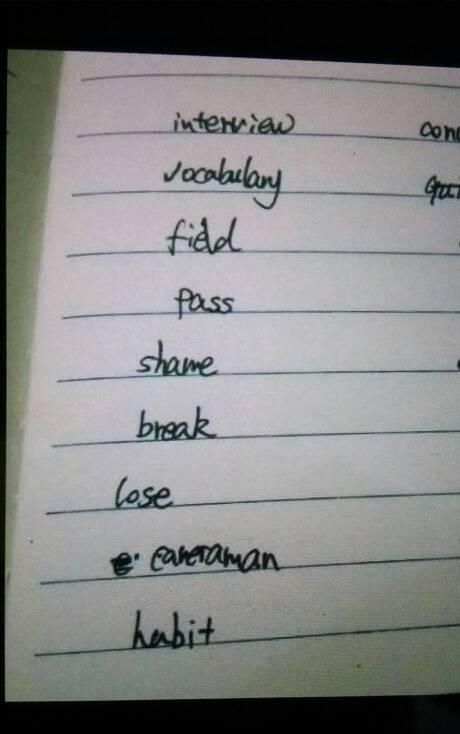 interview
vocabulary
field
pass
shame
break
lose
cameraman
habit